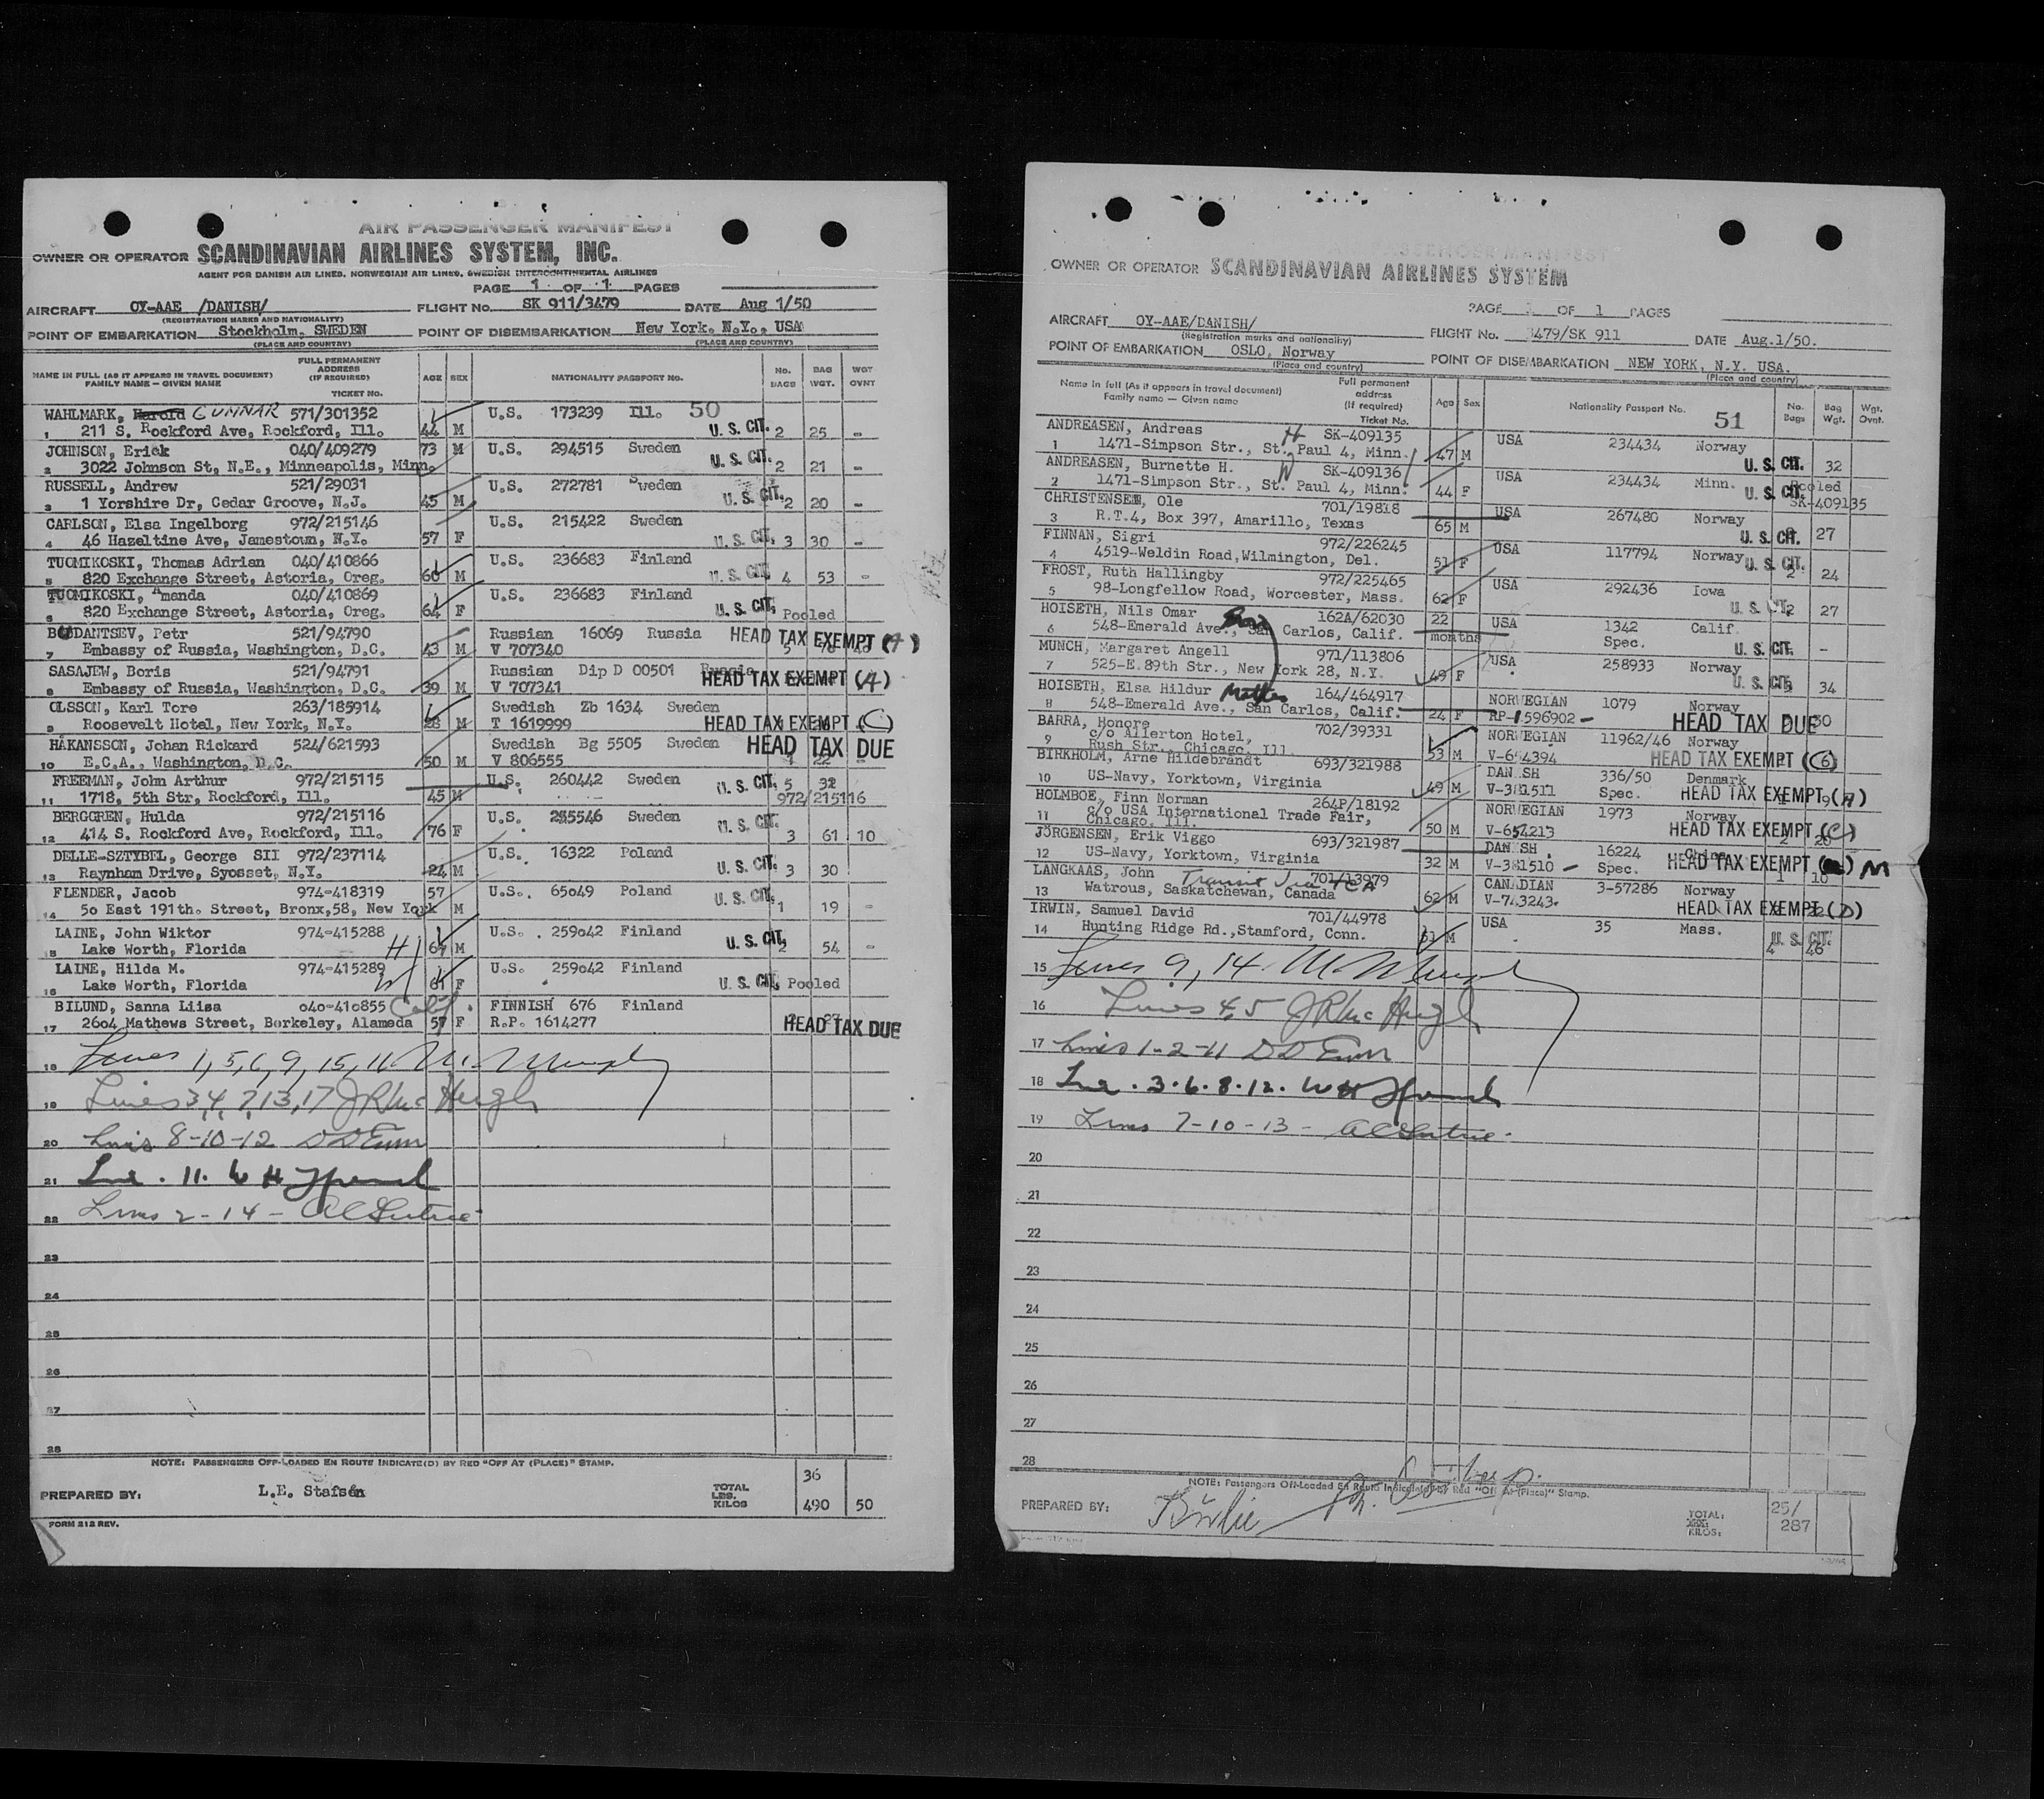 AIR PASSENGER MANIFEST
OWNER OR OPERATOR SCANDINAVIAN AIRLINES SYSTEM, INC.
AGENT FOR DANISH AIR LINES, NORWEGIAN AIR LINES, SWEDISH INTERCONTINENTAL AIRLINES
PAGE 1 OF 1 PAGES
AIRCRAFT OY-AAE /DANISH/ FLIGHT No. SK 911/3479 DATE Aug 1/50
(REGISTRATION MARKS AND NATIONALITY)
POINT OF EMBARKATION Stockholm, SWEDEN POINT OF DISEMBARKATION New York, N.Y., USA
(PLACE AND COUNTRY) (PLACE AND COUNTRY)
NAME IN FULL (AS IT APPEARS IN TRAVEL DOCUMENT) FAMILY NAME - GIVEN NAME FULL PERMANENT ADDRESS (IF REQUIRED) TICKET No. AGE SEX NATIONALITY PASSPORT NO. No. BAGS BAG WGT. WGT OVNT
WAHLMARK, Harold GUNNAR 571/301352 U.S. 173239 Ill. 50
1 211 S. Rockford Ave, Rockford, Ill. 44 M U.S. CIT. 2 25 -
JOHNSON, Erick 040/409279 73 M U.S. 294515 Sweden
2 3022 Johnson St, N.E., Minneapolis, Minn. U.S. CIT. 2 21 -
RUSSELL, Andrew 521/29031 U.S. 272781 Sweden
3 1 Yorshire Dr, Cedar Groove, N.J. 45 M U.S. CIT. 2 20 -
CARLSON, Elsa Ingelborg 972/215146 U.S. 215422 Sweden
4 46 Hazeltine Ave, Jamestown, N.Y. 57 F U.S. CIT. 3 30 -
TUOMIKOSKI, Thomas Adrian 040/410866 U.S. 236683 Finland
5 820 Exchange Street, Astoria, Oreg. 60 M U.S. CIT. 4 53 -
TUOMIKOSKI, Amanda 040/410869 U.S. 236683 Finland
6 820 Exchange Street, Astoria, Oreg. 64 F U.S. CIT. Pooled
BOGDANTSEV, Petr 521/94790 Russian 16069 Russia HEAD TAX EXEMPT (A)
7 Embassy of Russia, Washington, D.C. 43 M V 707340
SASAJEW, Boris 521/94791 Russian Dip D 00501 Russia
8 Embassy of Russia, Washington, D.C. 39 M V 707341 HEAD TAX EXEMPT (A)
OLSSON, Karl Tore 263/185914 Swedish Zb 1634 Sweden
9 Roosevelt Hotel, New York, N.Y. 28 M T 1619999 HEAD TAX EXEMPT (C)
HÅKANSSON, Johan Rickard 524/621593 Swedish Bg 5505 Sweden HEAD TAX DUE
10 E.C.A., Washington, D.C. 50 M V 806555 1 22 -
FREEMAN, John Arthur 972/215115 U.S. 260442 Sweden U.S. CIT. 5 32
11 1718, 5th Str, Rockford, Ill. 45 M 972/215116
BERGGREN, Hulda 972/215116 U.S. 255546 Sweden
12 414 S. Rockford Ave, Rockford, Ill. 76 F U.S. CIT. 3 61 10
DELLE-SZTYBEL, George SII 972/237114 U.S. 16322 Poland
13 Raynham Drive, Syosset, N.Y. 24 M U.S. CIT. 3 30
FLENDER, Jacob 974-418319 57 U.S. 65049 Poland
14 50 East 191th. Street, Bronx,58, New York M U.S. CIT. 1 19 -
LAINE, John Wiktor 974-415288 U.S. 259042 Finland
15 Lake Worth, Florida H 67 M U.S. CIT. 2 54 -
LAINE, Hilda M. 974-415289 U.S. 259042 Finland
16 Lake Worth, Florida W 61 F U.S. CIT. Pooled
BILUND, Sanna Liisa 040-410855 Calif. FINNISH 676 Finland
17 2604 Mathews Street, Berkeley, Alameda 57 F R.P. 1614277 HEAD TAX DUE
18 Lines 1, 5, 6, 9, 15, 16 M. Murphy
19 Lines 3 4, 7, 13, 17 J R Mc Hugh
20 Lines 8-10-12
21 Line . 11.
22 Lines 2-14 -
23
24
25
26
27
28
NOTE: PASSENGERS OFF-LOADED EN ROUTE INDICATE(D) BY RED "OFF AT (PLACE)" STAMP.
PREPARED BY: L.E. Stafsén TOTAL LBS. KILOS 36 490 50
FORM 212 REV.
AIR PASSENGER MANIFEST
OWNER OR OPERATOR SCANDINAVIAN AIRLINES SYSTEM
PAGE 1 OF 1 PAGES
AIRCRAFT OY-AAE/DANISH/ FLIGHT No. 3479/SK 911 DATE Aug.1/50.
(Registration marks and nationality)
POINT OF EMBARKATION OSLO, Norway POINT OF DISEMBARKATION NEW YORK, N.Y. USA.
(Place and country) (Place and country)
Name in full (As it appears in travel document) Family name — Given name Full permanent address (if required) Ticket No. Age Sex Nationality Passport No. 51 No. Bags Bag Wgt. Wgt. Ovnt.
ANDREASEN, Andreas H SK-409135 USA 234434 Norway
1 1471-Simpson Str., St. Paul 4, Minn. 47 M U.S. CIT. 32
ANDREASEN, Burnette H. W SK-409136 USA 234434 Minn. Pooled
2 1471-Simpson Str., St. Paul 4, Minn. 44 F U.S. CIT. SK-409135
CHRISTENSEN, Ole 701/19818 USA 267480 Norway
3 R.T.4, Box 397, Amarillo, Texas 65 M U.S. CIT. 27
FINNAN, Sigri 972/226245 USA 117794 Norway U.S. CIT.
4 4519-Weldin Road,Wilmington, Del. 51 F 2 24
FROST, Ruth Hallingby 972/225465 USA 292436 Iowa
5 98-Longfellow Road, Worcester, Mass. 62 F U.S. CIT. 2 27
HOISETH, Nils Omar Son 162A/62030 22 USA 1342 Calif.
6 548-Emerald Ave., San Carlos, Calif. months Spec. U.S. CIT. -
MUNCH, Margaret Angell 971/113806 USA 258933 Norway
7 525-E.89th Str., New York 28, N.Y. 49 F U.S. CIT. 34
HOISETH, Elsa Hildur Mother 164/464917 NORWEGIAN 1079 Norway
8 548-Emerald Ave., San Carlos, Calif. 24 F RP-1596902 - HEAD TAX DUE 30
BARRA, Honore 702/39331 NORWEGIAN 11962/46 Norway
9 c/o Allerton Hotel, Rush Str., Chicago, Ill. 53 M V-654394 HEAD TAX EXEMPT (C6)
BIRKHOLM, Arne Hildebrandt 693/321988 DANISH 336/50 Denmark
10 US-Navy, Yorktown, Virginia 49 M V-381511 Spec. HEAD TAX EXEMPT (A)
HOLMBOE, Finn Norman 264P/18192 NORWEGIAN 1973 Norway
11 c/o USA International Trade Fair, Chicago, Ill. 50 M V-654213 HEAD TAX EXEMPT (C)
JÖRGENSEN, Erik Viggo 693/321987 DANISH. 16224 China
12 US-Navy, Yorktown, Virginia 32 M V-381510 - Spec. HEAD TAX EXEMPT M 1 10
LANGKAAS, John Transit via TCA 701/13979 CANADIAN 3-57286 Norway
13 Watrous, Saskatchewan, Canada 62 M V-743243. HEAD TAX EXEMPT (D)
IRWIN, Samuel David 701/44978 USA 35 Mass.
14 Hunting Ridge Rd.,Stamford, Conn. 51 M U.S. CIT. 4 46
15 Lines 9, 14. M. Murphy
16 Lines 4,5 J R Mc Hugh
17 Lines 1-2-11
18 Line . 3.6.8.12.
19 Lines 7-10-13 -
20
21
22
23
24
25
26
27
28
NOTE: Passengers Off-Loaded En Route Indicate(d) by Red "Off At (Place)" Stamp.
PREPARED BY: TOTAL: KILOS: 25/ 287